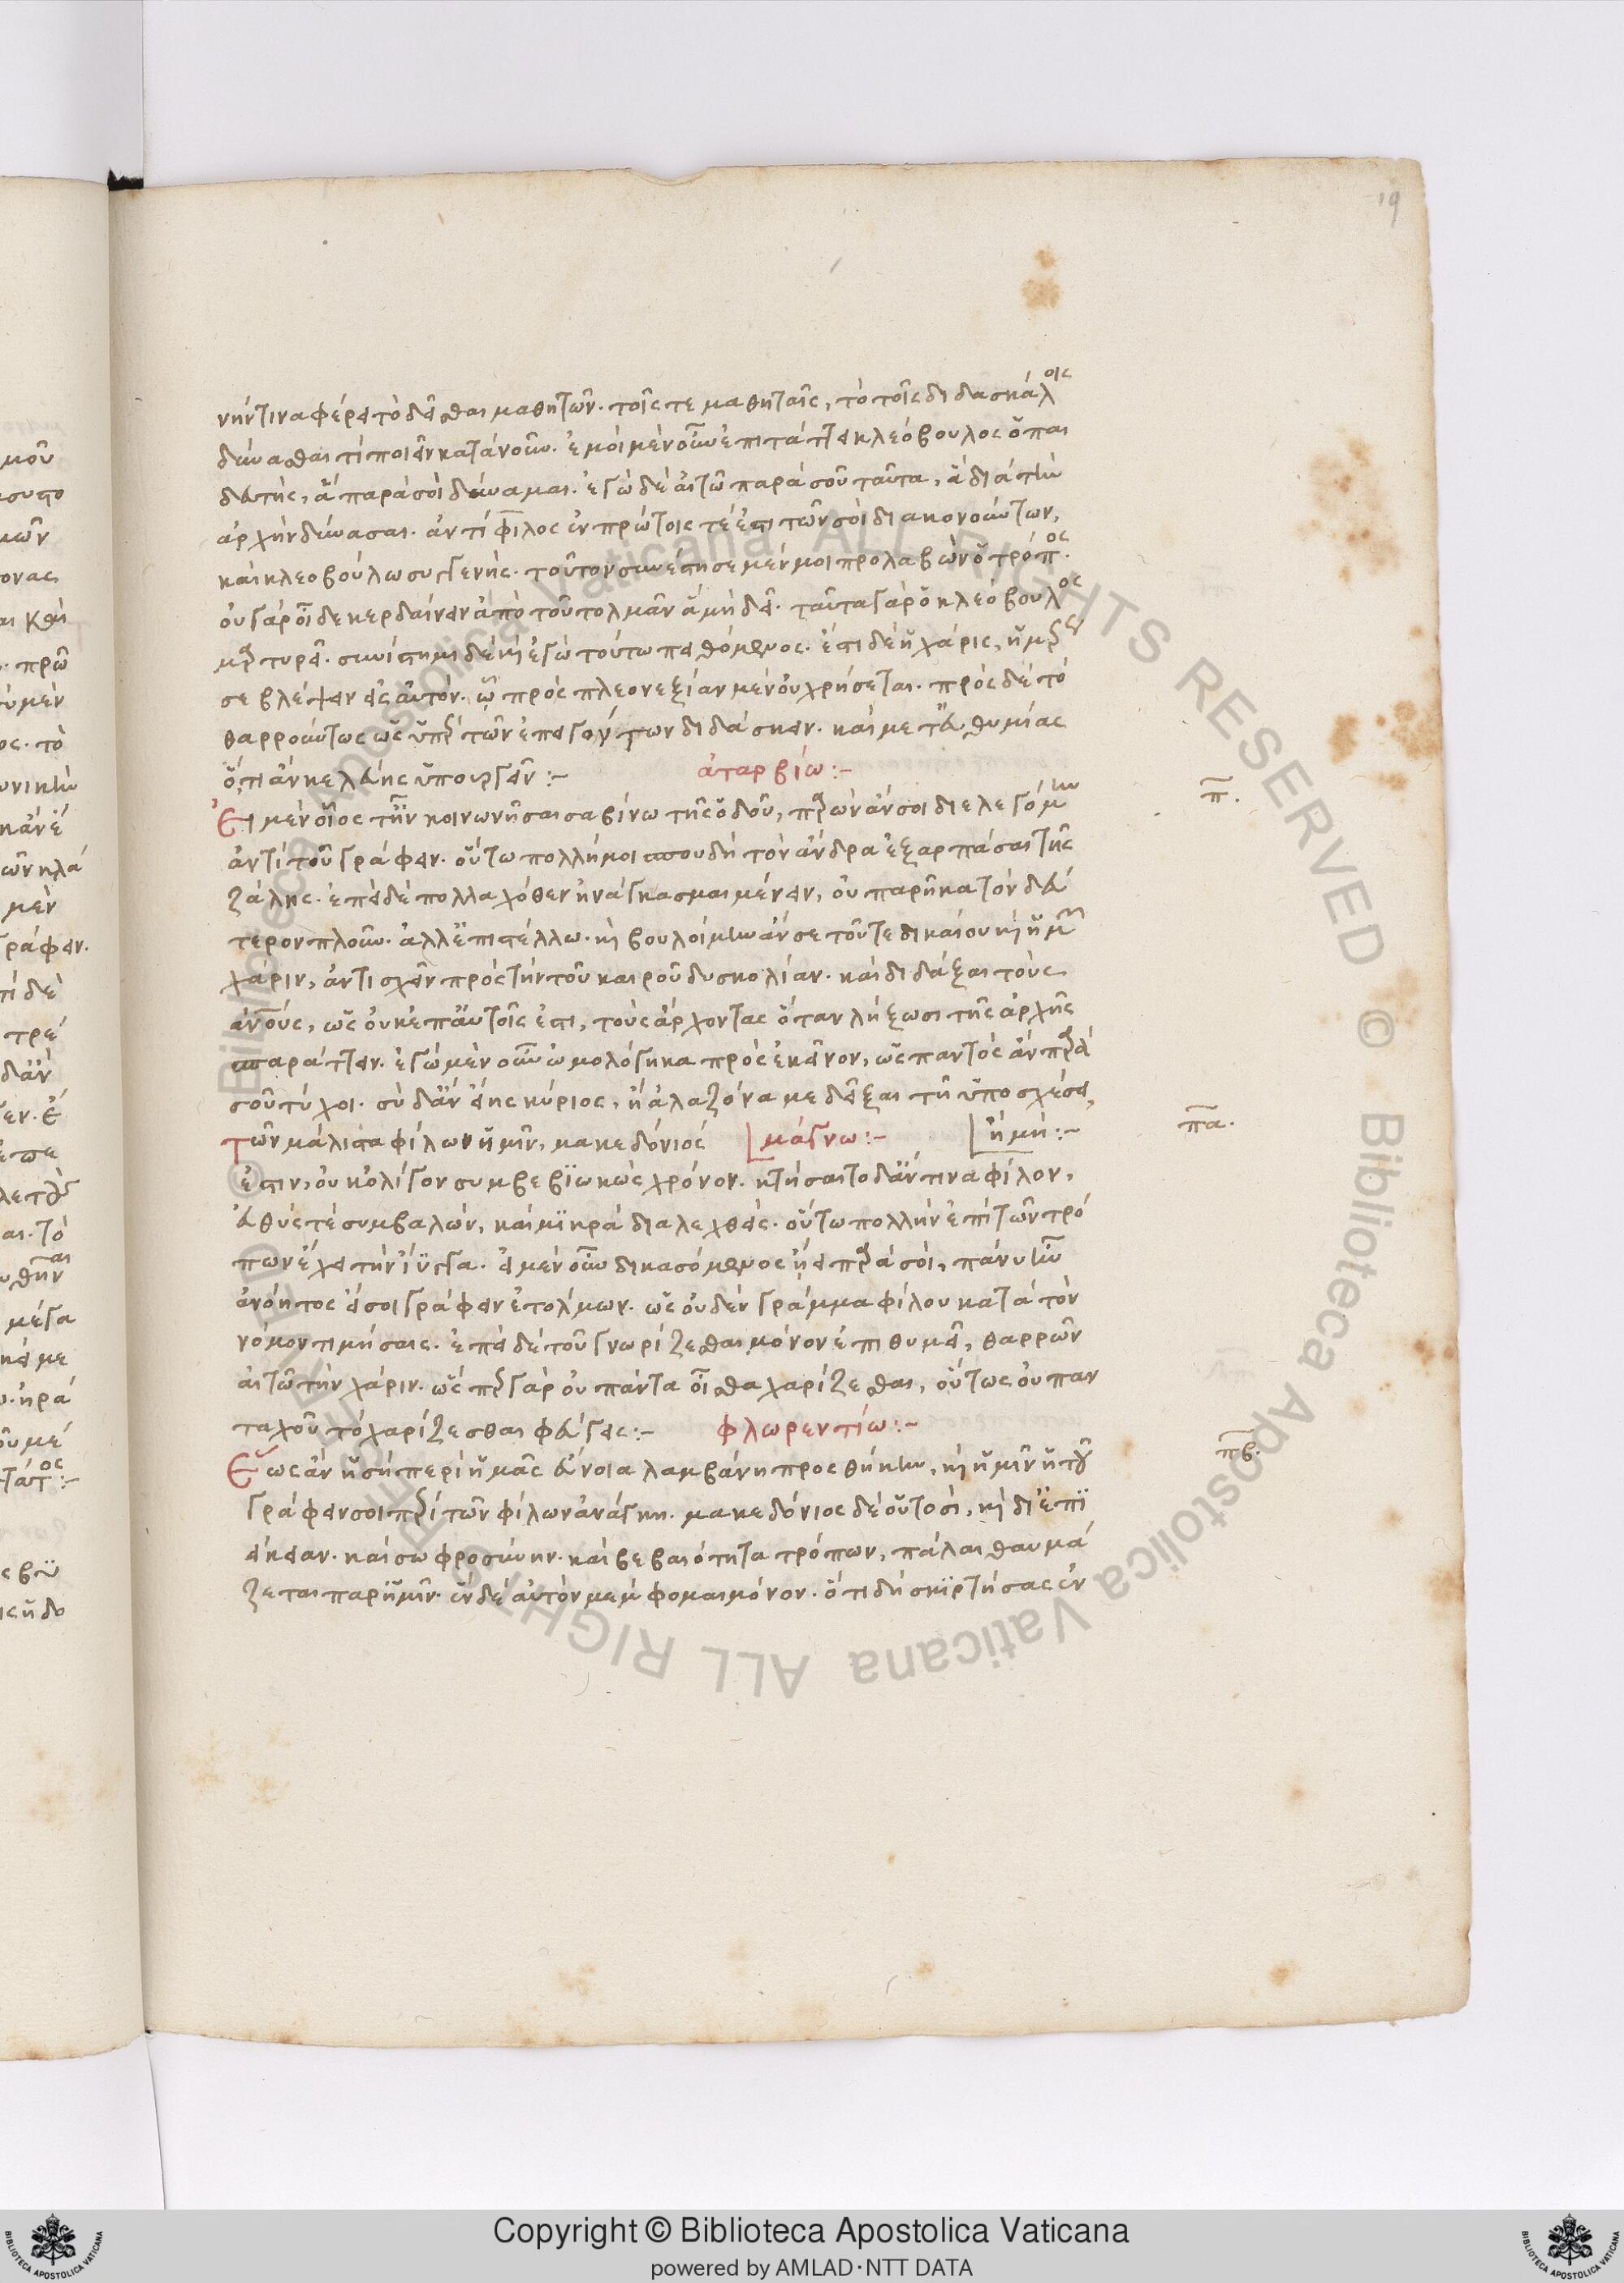 19
νήν τινα φέρει τὸ δεῖσθαι μαθητῶν. τοῖς τε μαθηταῖς, τὸ τοῖς διδασκάλοις
δύνασθαι τί ποιεῖν κατὰ νοῦν. ἐμοὶ μὲν οὖν ἐπιτάττει κλεόβουλος ὁ παι
δευτής, ἃ παρὰ σοὶ δύναμαι. ἐγὼ δὲ αἰτῶ παρὰ σοῦ ταῦτα, ἃ διὰ τὴν
ἀρχὴν δύνασαι. ἀντίφιλος ἐν πρώτοις τέ ἐστι τῶν σοὶ διακονούντων,
καὶ κλεοβούλω συγγενής. τοῦτον συνέστησε μέν μοι προλαβὼν ὁ τρόπος.
οὐ γὰρ οἶδε κερδαίνειν ἀπὸ τοῦ τολμᾶν ἃ μὴ δεῖ. ταῦτα γὰρ ὁ κλεόβουλος
μαρτυρεῖ. συνίστημι δὲ καὶ ἐγὼ τούτω πειθόμενος. ἔστι δὲ ἡ χάρις, ἡμέρως
σε βλέπειν εἰς αὐτόν. ᾧ πρὸς πλεονεξίαν μὲν οὐ χρήσεται. πρὸς δὲ τὸ
θαρρούντως ὡς ὑπὲρ τῶν ἐπειγόντων διδάσκειν. καὶ μετ εὐθυμίας
ὅ,τι ἂν κελεύης ὑπουργεῖν :-
ἀταρβίω :-
π.
Εἰ μὲν οἷός τ ἦν κοινωνῆσαι σαβίνω τῆς ὁδοῦ, παρὼν ἄν σοι διελεγόμην
ἀντὶ τοῦ γράφειν. οὕτω πολλή μοι σπουδὴ τὸν ἄνδρα ἐξαρπάσαι τῆς
ζάλης. ἐπεὶ δὲ πολλαχόθεν ἠνάγκασμαι μένειν, οὐ παρῆκα τὸν δεύ
τερον πλοῦν. ἀλλ ἐπιστέλλω. καὶ βουλοίμην ἄν σε τοῦ τε δικαίου καὶ ἡμῶν
χάριν, ἀντισχεῖν πρὸς τὴν τοῦ καιροῦ δυσκολίαν. καὶ διδάξαι τοὺς
ἀνους, ὡς οὐκ ἐπ αὐτοῖς ἐστι, τοὺς ἄρχοντας ὅταν λήξωσι τῆς ἀρχῆς
σπαράττειν. ἐγὼ μὲν οὖν ὡμολόγηκα πρὸς ἐκεῖνον, ὡς παντὸς ἂν παρὰ
σοῦ τύχοι. σὺ δ ἂν εἴης κύριος, ἢ ἀλαζόνα με δεῖξαι τῆ ὑποσχέσει,
ἢ μή :-
μάγνω :-
πα.
Τῶν μάλιστα φίλων ἡμῖν, μακεδόνιός
ἐστιν, οὐκ ὀλίγον συμβεβιωκὼς χρόνον. κτήσαιτο δ ἄν τινα φίλον,
εὐθύς τε συμβαλών, καὶ μικρὰ διαλεχθείς. οὕτω πολλὴν ἐπὶ τῶν τρό
πων ἔχει τὴν ἴυγγα. εἰ μὲν οὖν δικασόμενος ἤει παρά σοι, πάνυ ἂν ἦν
ἀνόητος εἴ σοι γράφειν ἐτόλμων. ὡς οὐδὲν γράμμα φίλου κατὰ τὸν
νόμον τιμήσαις. ἐπεὶ δὲ τοῦ γνωρίζεσθαι μόνον ἐπιθυμεῖ, θαρρῶν
αἰτῶ τὴν χάριν. ὥσπερ γὰρ οὐ πάντα οἶσθα χαρίζεσθαι, οὕτως οὐ παν
ταχοῦ τὸ χαρίζεσθαι φεύγεις :-
φλωρεντίω :-
πβ.
Ἕως ἂν ἡ σὴ περὶ ἡμᾶς εὔνοια λαμβάνη προσθήκην, καὶ ἡμῖν ἡ τοῦ
γράφειν σοι περὶ τῶν φίλων ἀνάγκη. μακεδόνιος δὲ οὑτοσὶ, καὶ δι ἐπι
είκειαν. καὶ σωφροσύνην. καὶ βεβαιότητα τρόπων, πάλαι θαυμά
ζεται παρ ἡμῖν. ἓν δὲ αὐτὸν μέμφομαι μόνον. ὅτι δὴ σκιρτήσας ἐν
Copyright © Biblioteca Apostolica Vaticana
powered by AMLAD·NTT DATA